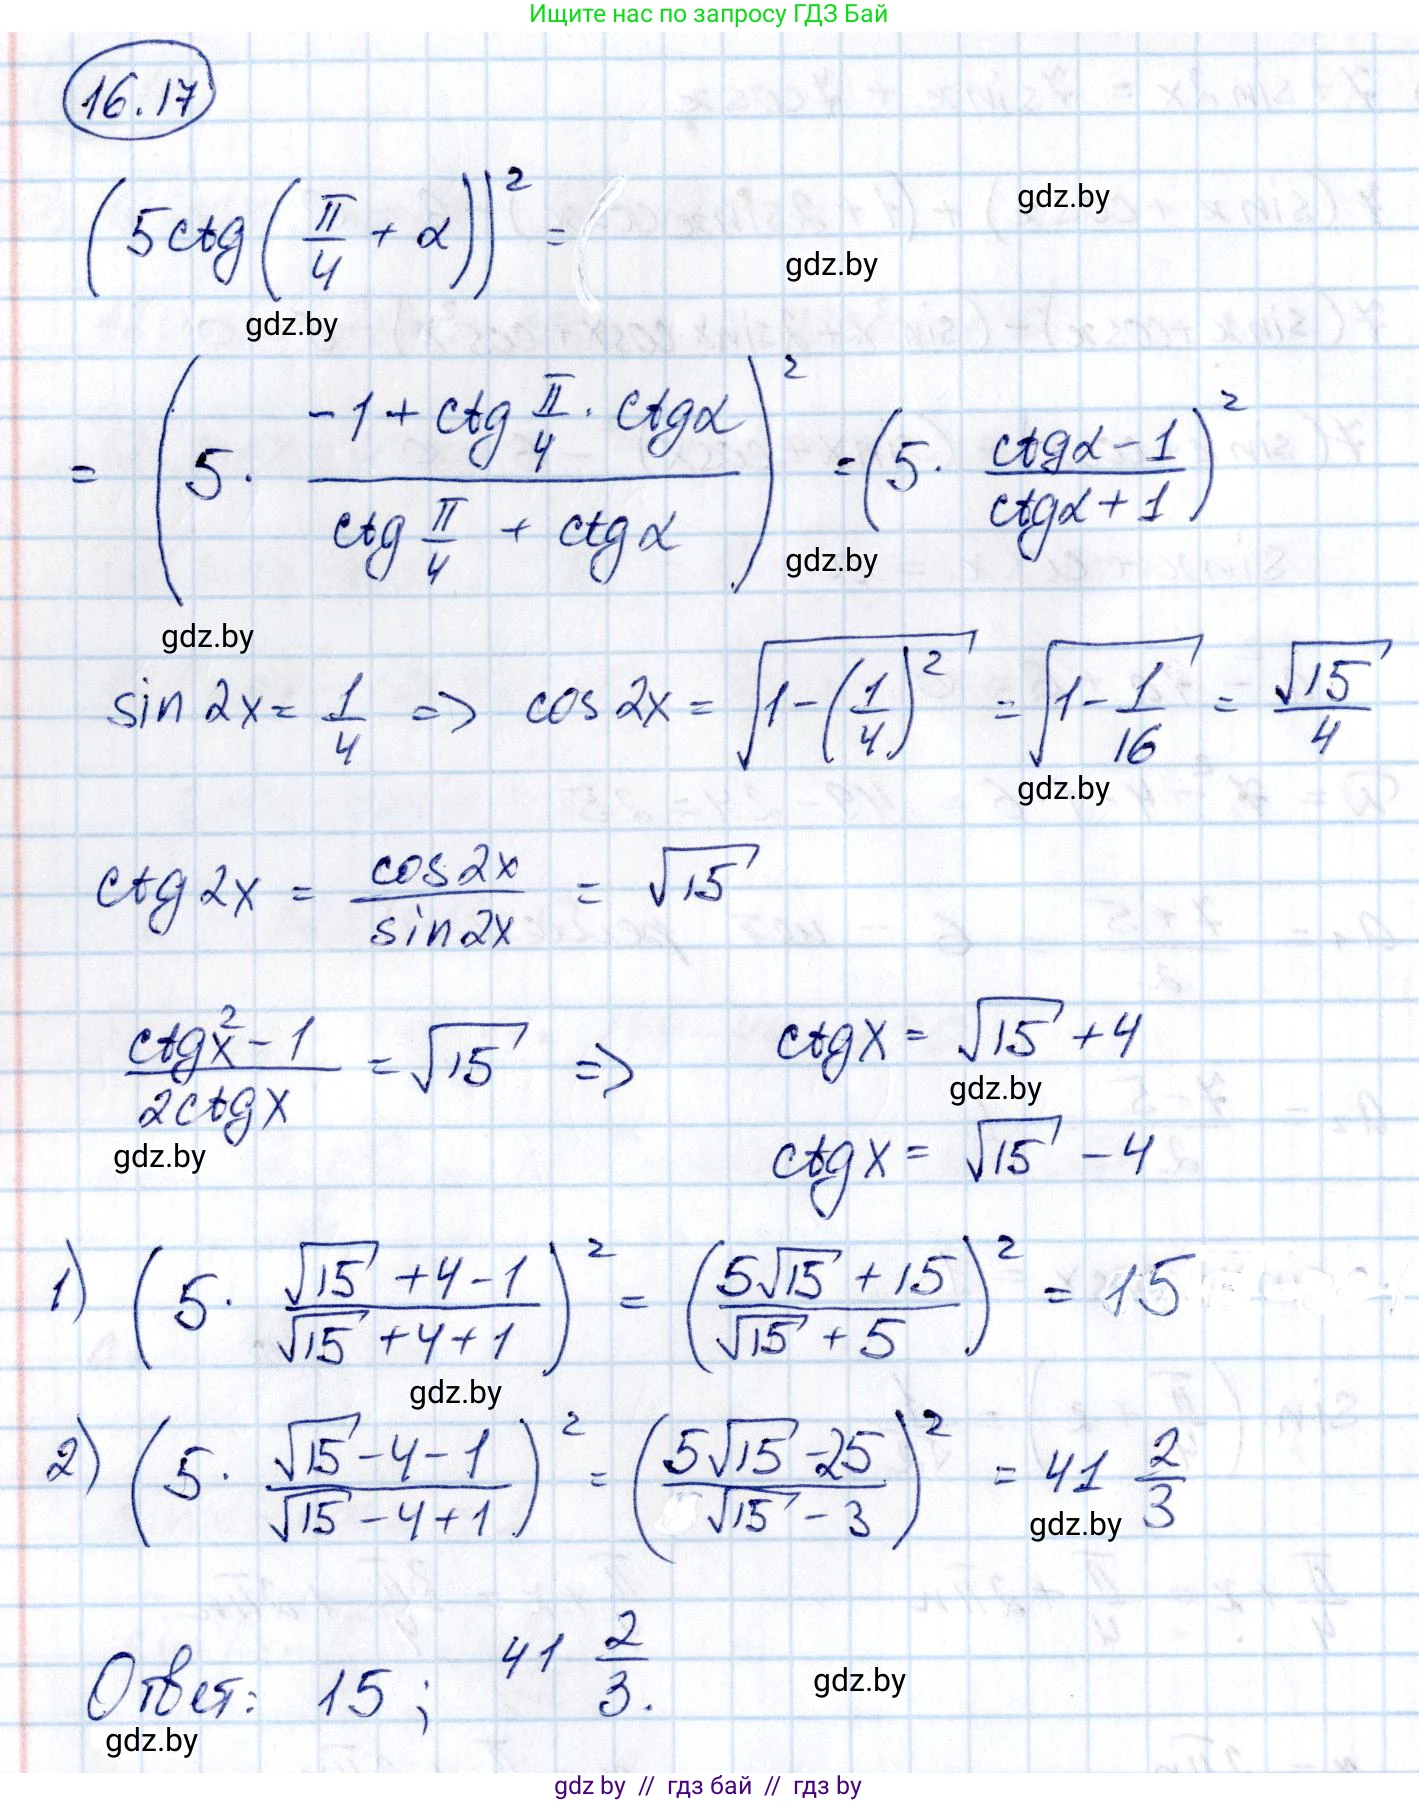 Ищите нас по запросу ГДЗ Бай
16.17
(5ctg(π/4 + α))² =
gdz.by
gdz.by
gdz.by
= (5 · (-1 + ctg π/4 · ctgα)/(ctg π/4 + ctgα))² = (5 · (ctgα - 1)/(ctgα + 1))²
gdz.by
gdz.by
sin 2x = 1/4 => cos 2x = √(1 - (1/4)²) = √(1 - 1/16) = √15/4
gdz.by
ctg 2x = cos 2x/sin 2x = √15
(ctg²x - 1)/(2ctgx) = √15 => ctgx = √15 + 4
gdz.by
ctgx = √15 - 4
gdz.by
1) (5 · (√15 + 4 - 1)/(√15 + 4 + 1))² = ((5√15 + 15)/(√15 + 5))² = 15
gdz.by
2) (5 · (√15 - 4 - 1)/(√15 - 4 + 1))² = ((5√15 - 25)/(√15 - 3))² = 41 2/3
gdz.by
Ответ: 15; 41 2/3.
gdz.by
gdz.by
gdz by // гдз бай // гдз by